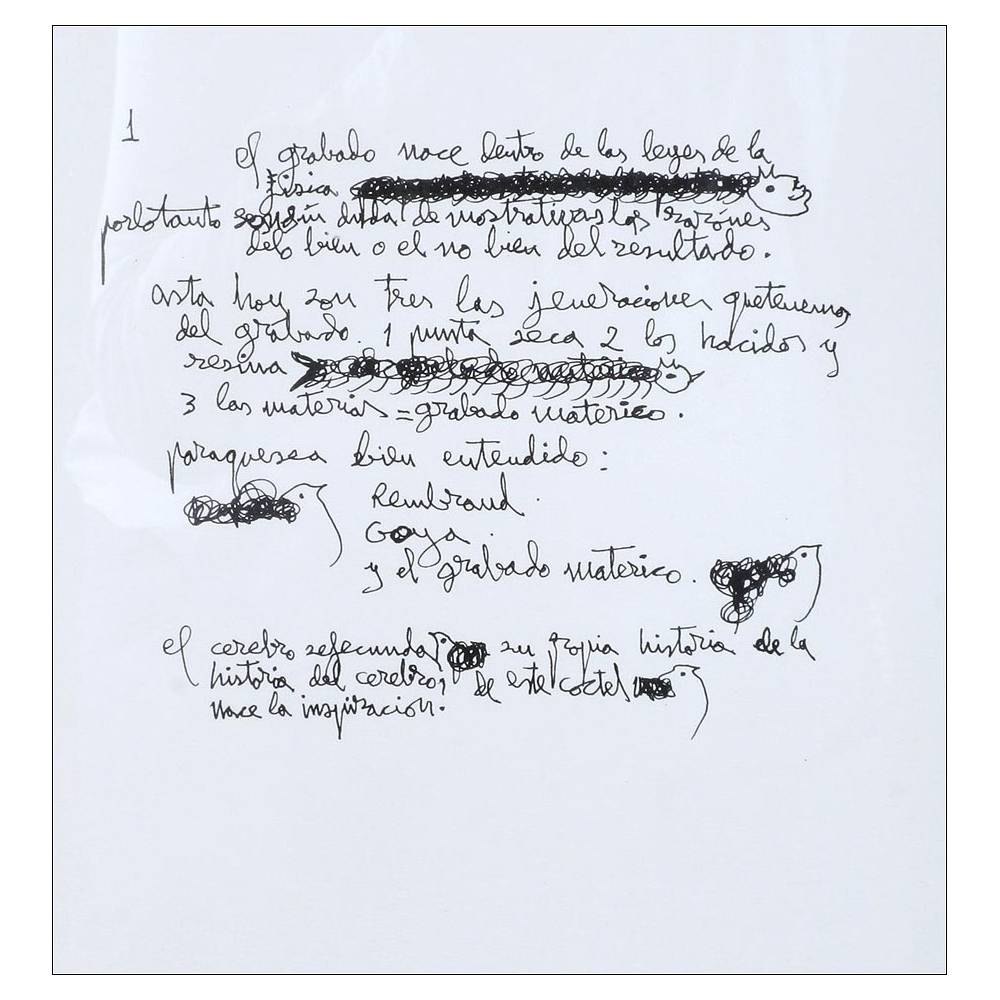 1
el grabado nace dentro de las leyes de la
fisica
porlotanto segun duda demostrativas las razónes
delo bien o el no bien del resultado.
asta hoy son tres las jeneraciones quetenemos
del grabado. 1 punta seca 2 los hacidos y
resina
3 las materias = grabado materico.
paraquesea bien entendido:
Rembrand.
Goya.
y el grabado materico.
el cerebro sefecunda su propia historia de la
historia del cerebro; de este coctel
nace la inspiracion.